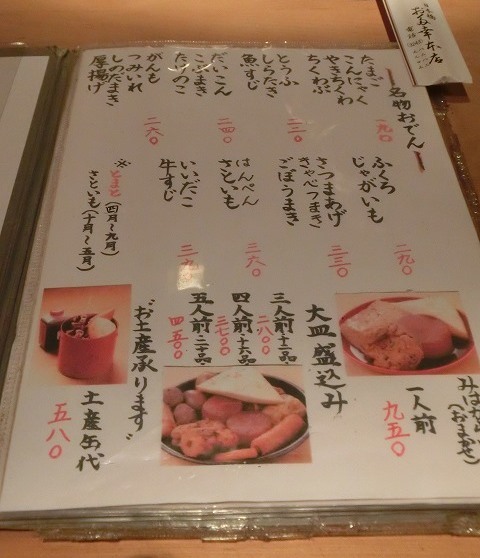 お多幸本店
名物おでん
たまご
こんにゃく
やきちくわ
ちくわぶ
一九〇
とうふ
しらたき
魚すじ
二二〇
だいこん
こぶまき
たけのこ
二四〇
がんも
つみいれ
しのだまき
厚揚げ
二六〇
ふくろ
じゃがいも
二九〇
さつまあげ
きゃべつまき
ごぼうまき
三三〇
はんぺん
さといも
三六〇
いいだこ
牛すじ
三九〇
※とまと(四月〜九月)
さといも(十月〜五月)
みはからい
(おまかせ)
一人前
九五〇
大皿盛込み
三人前十二品
二八〇〇
四人前十六品
三七〇〇
五人前二十品
四五〇〇
"お土産承ります"
土産缶代
五八〇